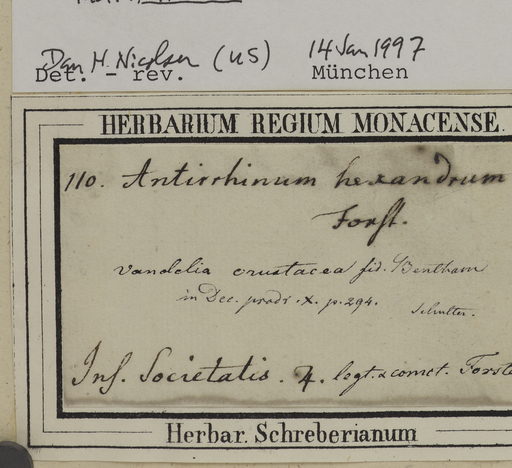 Dan H. Nicolson (US) 14 Jan 1997
Det. - rev. München
HERBARIUM REGIUM MONACENSE.
110. Antirrhinum hexandrum
Forst.
Vandelia crustacea fid. Bentham
in Dec. prodr. X. p. 294.
Schulter.
Ins. Societatis. 4. legt. & comct. Forste
Herbar. Schreberianum